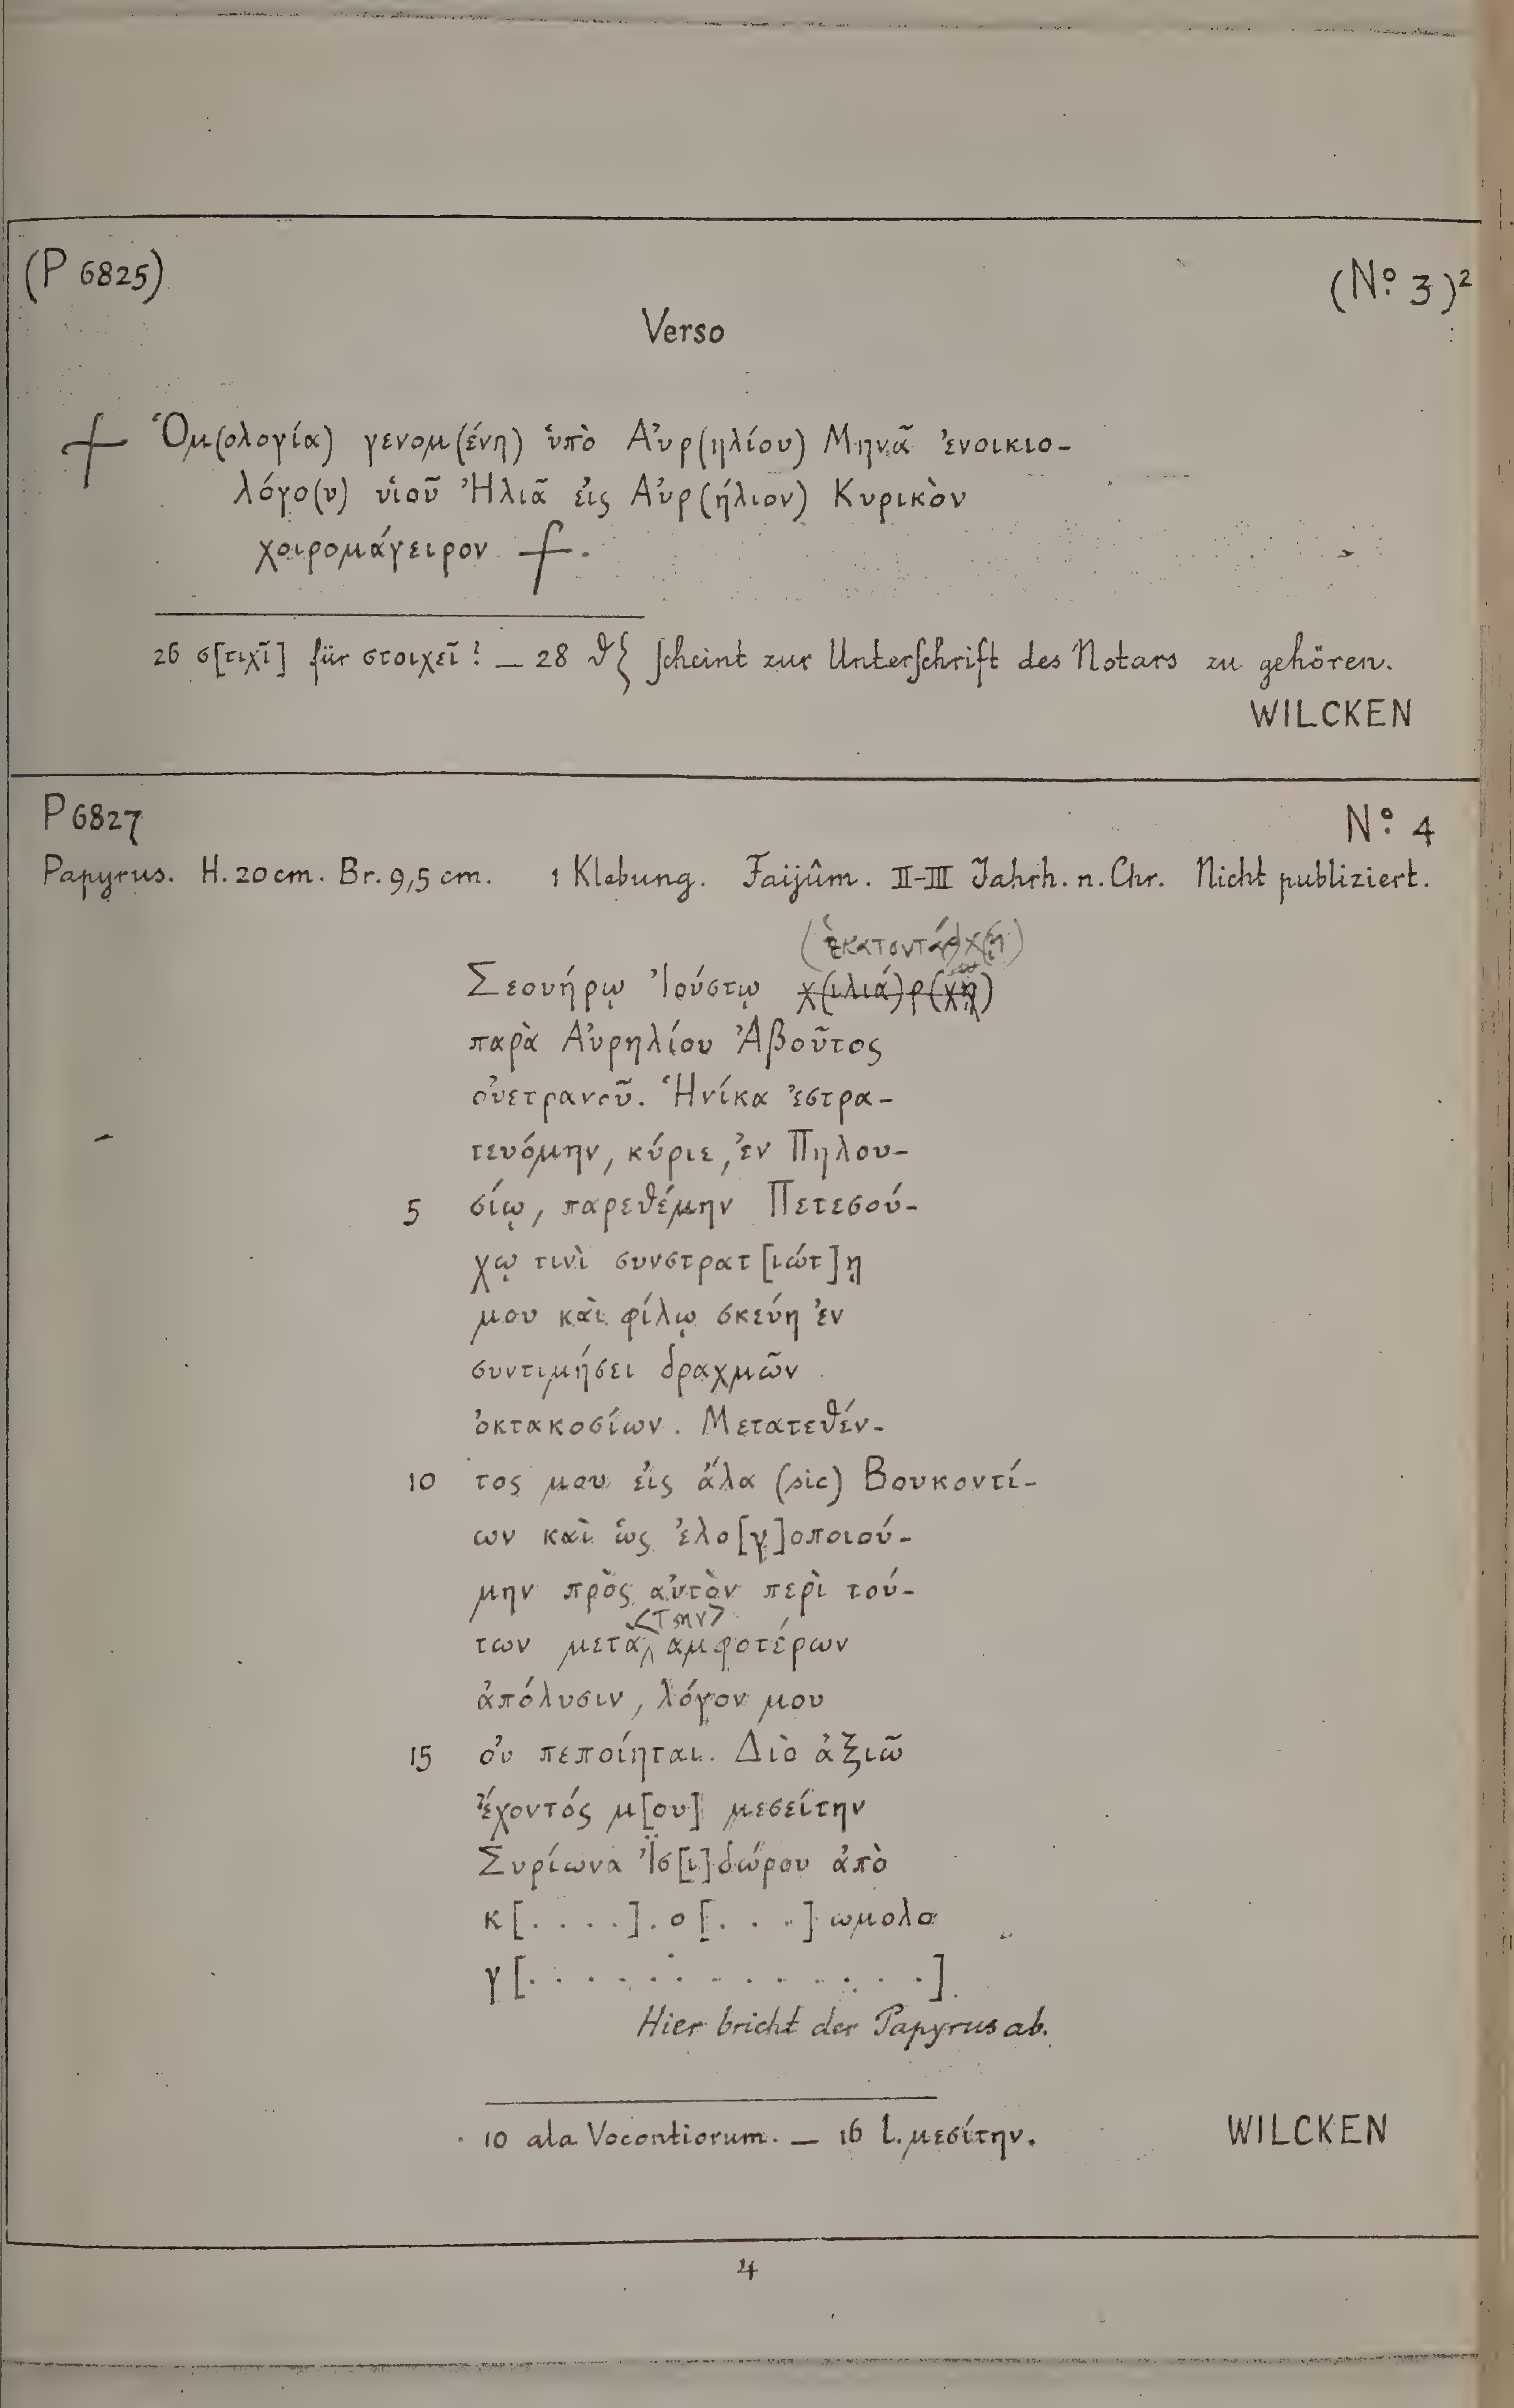 (P 6825)
(Nº 3)²
Verso
⳨ Ὁμ(ολογία) γενομ(ένη) ὑπὸ Αὐρ(ηλίου) Μηνᾶ ἐνοικιο-
λόγο(υ) υἱοῦ Ἠλιᾶ εἰς Αὐρ(ήλιον) Κυρικὸν
χοιρομάγειρον ⳨.
26 σ[τιχῖ] für στοιχεῖ? — 28 scheint zur Unterschrift des Notars zu gehören.
WILCKEN
P 6827
Nº 4
Papyrus. H. 20 cm. Br. 9,5 cm. 1 Klebung. Faijûm. II-III Jahrh. n. Chr. Nicht publiziert.
(ἑκατοντάρχ(ῃ)
Σεουήρῳ Ἰούστῳ χ(ιλιά)ρ(χῃ)
παρὰ Αὐρηλίου Ἀβοῦτος
οὐετρανοῦ. Ἡνίκα ἐστρα-
τευόμην, κύριε, ἐν Πηλου-
5 σίῳ, παρεθέμην Πετεσού-
χῳ τινὶ συνστρατ[ιώτ]ῃ
μου καὶ φίλῳ σκεύη ἐν
συντιμήσει δραχμῶν
ὀκτακοσίων. Μετατεθέν-
10 τος μου εἰς ἄλα (sic) Βουκοντί-
ων καὶ ὡς ἐλο[γ]οποιού-
μην πρὸς αὐτὸν περὶ τού-
<την>
των μετα αμφοτέρων
ἀπόλυσιν, λόγον μου
15 οὐ πεποίηται. Διὸ ἀξιῶ
ἔχοντός μ[ου] μεσείτην
Συρίωνα Ἰσ[ι]δώρου ἀπὸ
κ[. . . .] . ο[. . . .] ωμολο
γ[. . . . . . . . . . . . . .]
Hier bricht der Papyrus ab.
10 ala Vocontiorum. — 16 l. μεσίτην.
WILCKEN
4